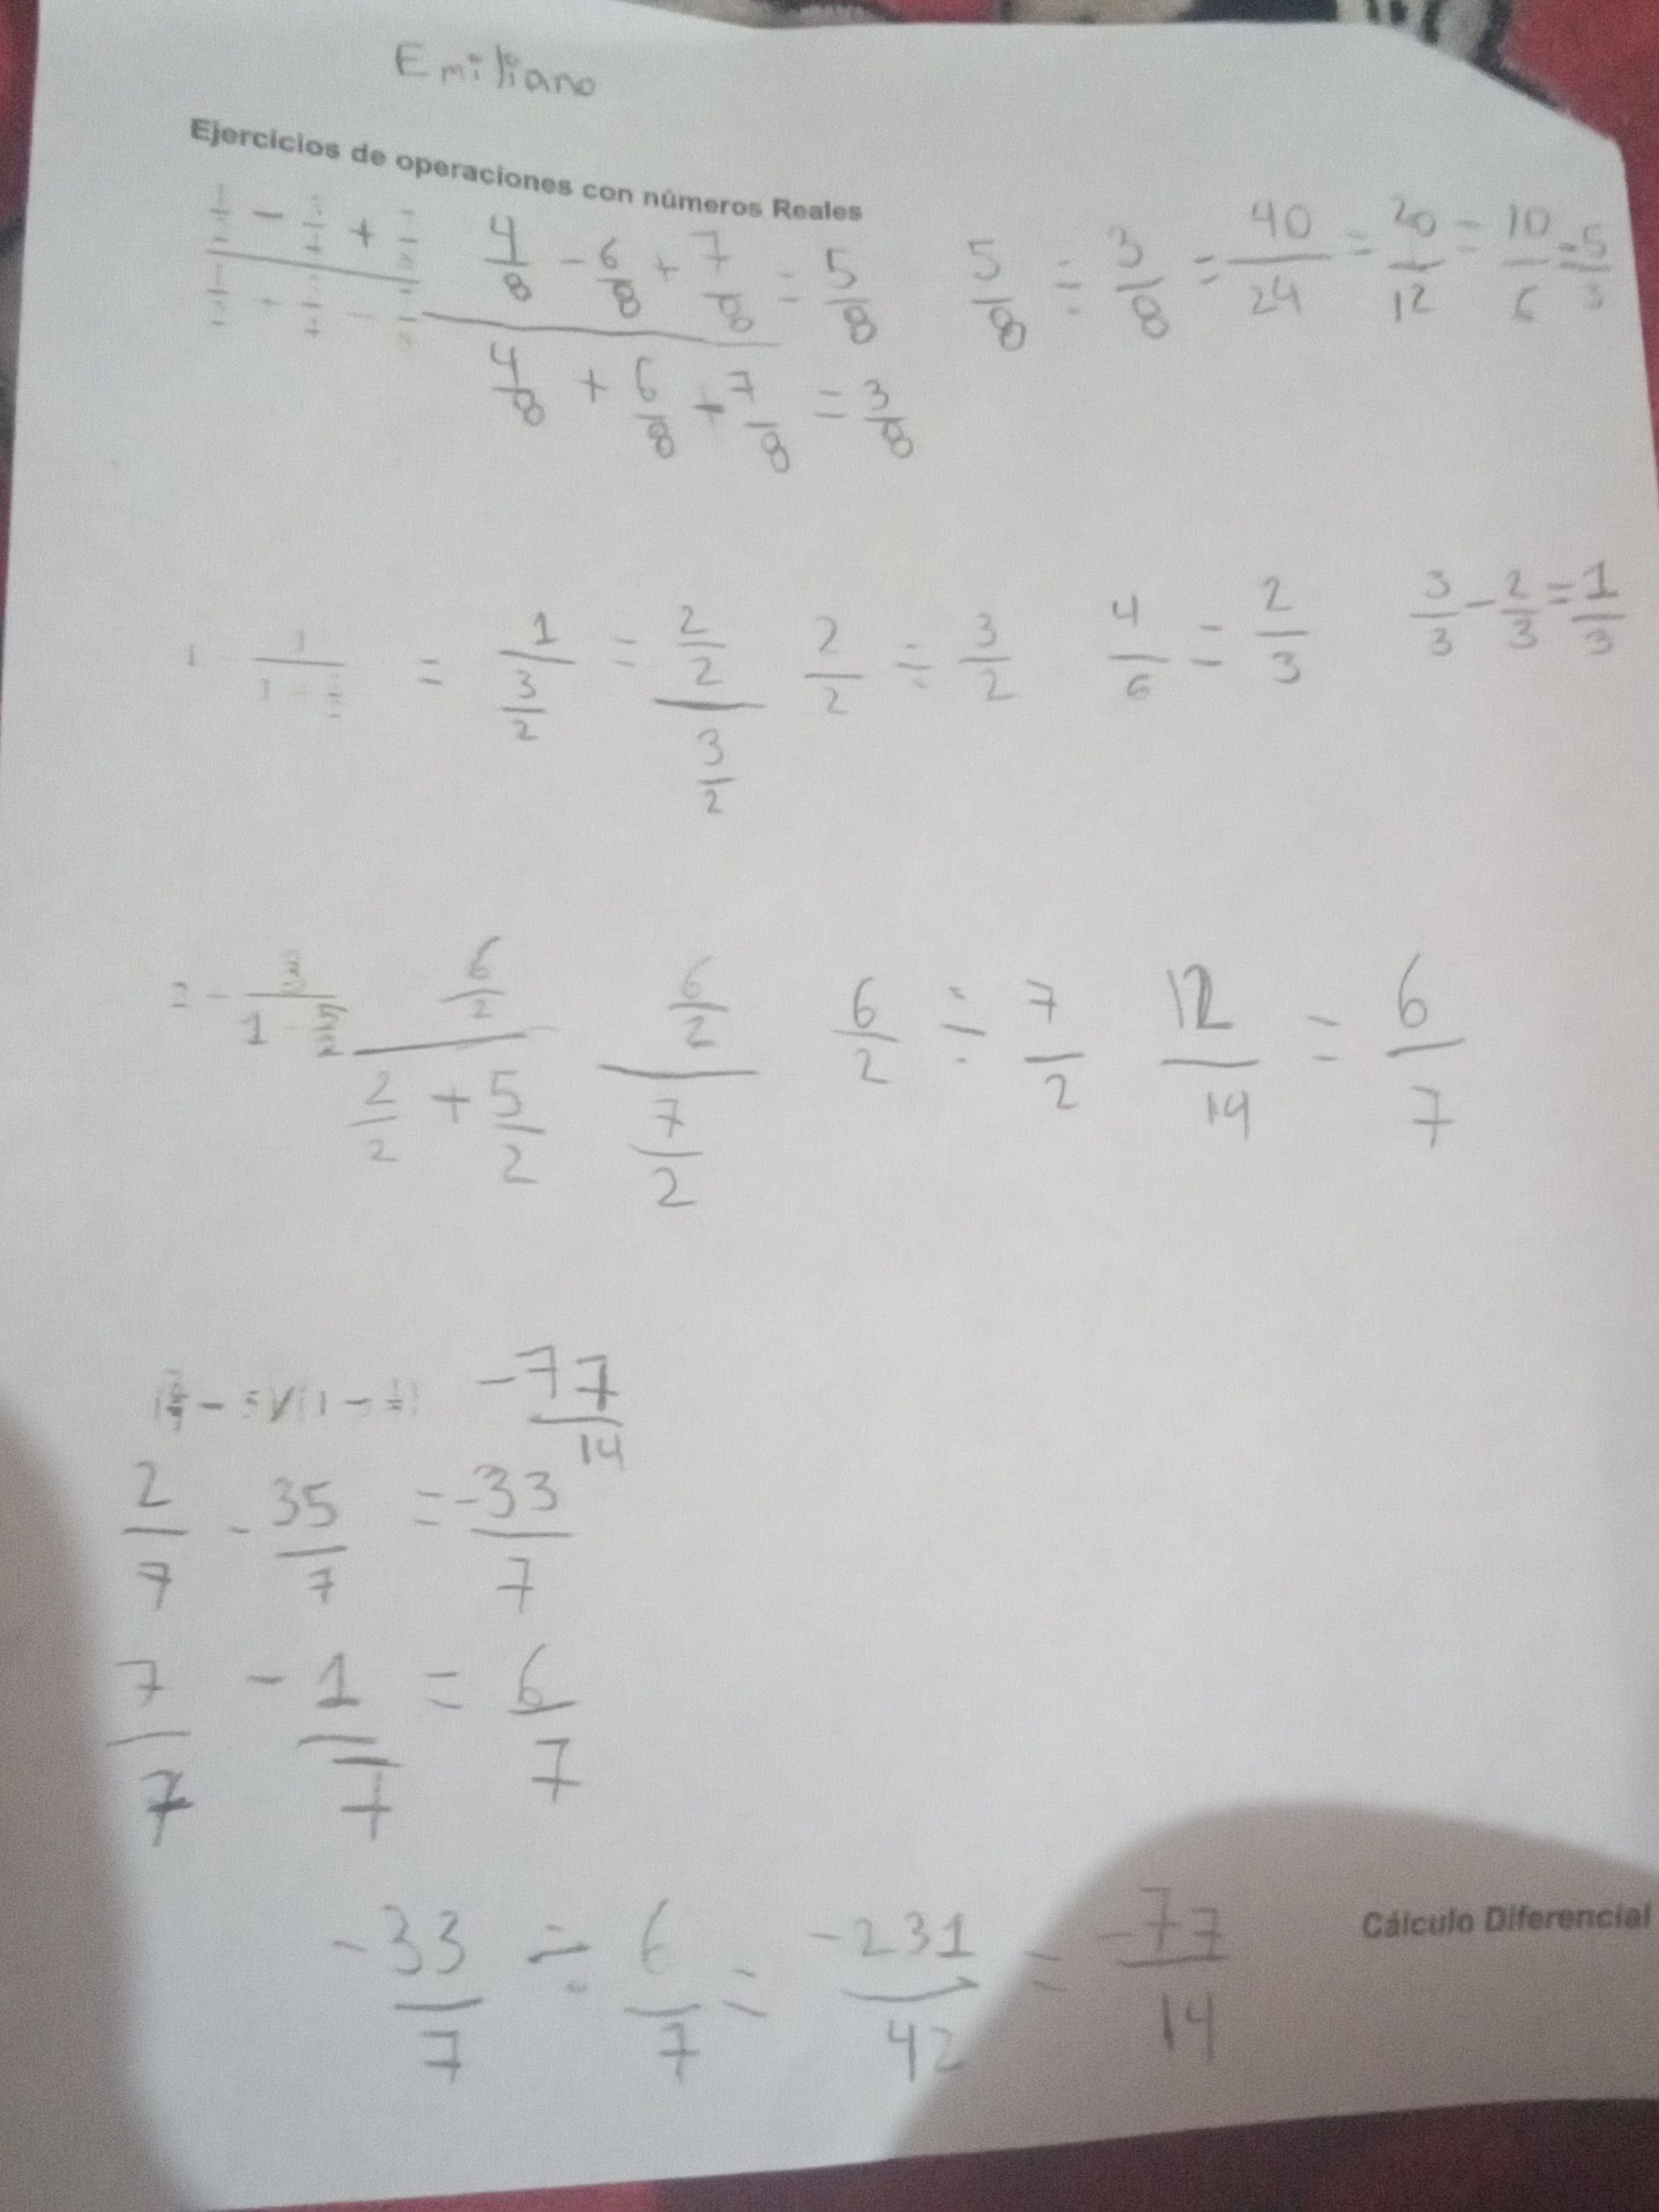 Emiliano
Ejercicios de operaciones con números Reales
4/8 - 6/8 + 7/8 = 5/8
5/8 ÷ 3/8 = 40/24 = 20/12 = 10/6 = 5/3
4/8 + 6/8 - 7/8 = 3/8
= 1/(3/2) = (2/2)/(3/2) 2/2 ÷ 3/2 4/6 = 2/3 3/3 - 2/3 = 1/3
(6/2)/(2/2 + 5/2) (6/2)/(7/2) 6/2 ÷ 7/2 12/14 = 6/7
-77/14
2/7 - 35/7 = -33/7
7/7 - 1/7 = 6/7
-33/7 ÷ 6/7 = -231/42 = -77/14
Cálculo Diferencial